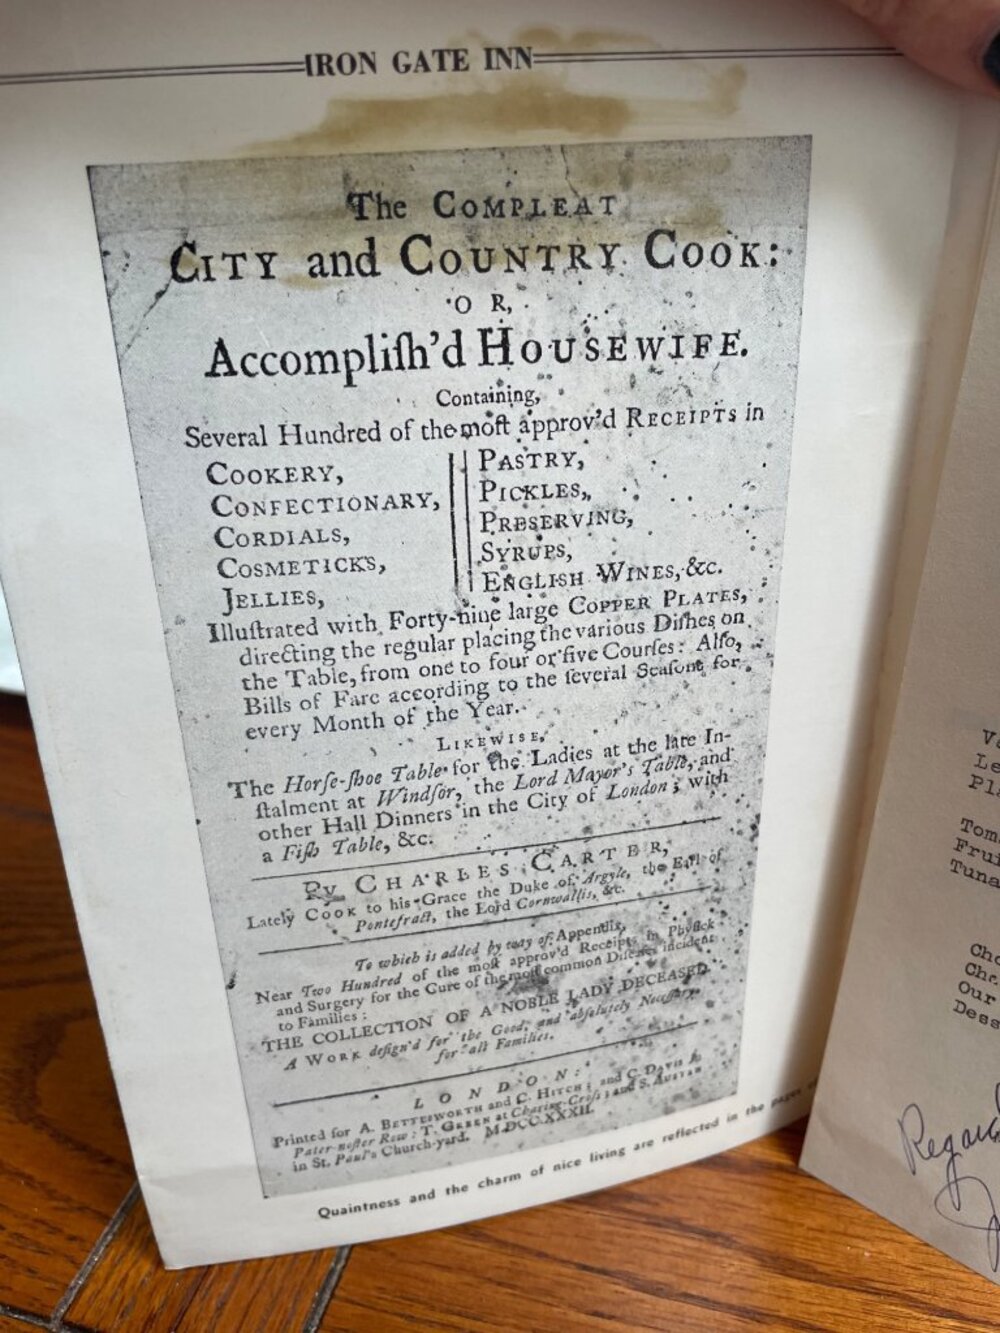 IRON GATE INN
The COMPLEAT
CITY and COUNTRY COOK:
O R,
Accompliſh'd HOUSEWIFE.
Containing,
Several Hundred of the moſt approv'd RECEIPTS in
COOKERY,
CONFECTIONARY,
CORDIALS,
COSMETICKS,
JELLIES,
PASTRY,
PICKLES,
PRESERVING,
SYRUPS,
ENGLISH WINES, &c.
Illuſtrated with Forty-nine large COPPER PLATES,
directing the regular placing the various Diſhes on
the Table, from one to four or five Courſes: Alſo,
Bills of Fare according to the ſeveral Seaſons for
every Month of the Year.
LIKEWISE,
The Horſe-ſhoe Table for the Ladies at the late In-
ſtalment at Windſor, the Lord Mayor's Table, and
other Hall Dinners in the City of London; with
a Fiſh Table, &c.
By CHARLES CARTER,
Lately COOK to his Grace the Duke of Argyle, the Earl of
Pontefract, the Lord Cornwallis, &c.
To which is added by way of Appendix,
Near Two Hundred of the moſt approv'd Receipts in Phyſick
and Surgery for the Cure of the moſt common Diſeaſes incident
to Families:
THE COLLECTION OF A NOBLE LADY DECEASED.
A WORK deſign'd for the Good, and abſolutely Neceſſary
for all Families.
LONDON:
Printed for A. BETTESWORTH and C. HITCH; and C. DAVIS in
Pater-noſter Row: T. GREEN at Charing-Croſs; and S. AUSTEN
in St. Paul's Church-yard. M.DCC.XXXII.
Quaintness and the charm of nice living are reflected in the pages
Tom
Frui
Tuna
Cho
Our
Dess